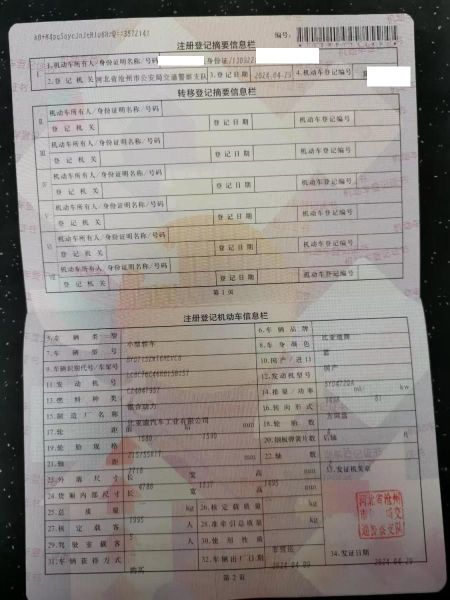 编号:
注册登记摘要信息栏
I 1.机动车所有人/身份证明名称/号码
2.登记机关 河北省沧州市公安局交通警察支队 3.登记日期 2024-04-25 4.机动车登记编号
转移登记摘要信息栏
II 机动车所有人/身份证明名称/号码
登记机关 登记日期 机动车登记编号
III 机动车所有人/身份证明名称/号码
登记机关 登记日期 机动车登记编号
IV 机动车所有人/身份证明名称/号码
登记机关 登记日期 机动车登记编号
V 机动车所有人/身份证明名称/号码
登记机关 登记日期 机动车登记编号
VI 机动车所有人/身份证明名称/号码
登记机关 登记日期 机动车登记编号
VII 机动车所有人/身份证明名称/号码
登记机关 登记日期 机动车登记编号
第1页
注册登记机动车信息栏
5.车辆类型 小型轿车 6.车辆品牌 比亚迪牌
7.车辆型号 8.车身颜色 蓝
9.车辆识别代号/车架号 10.国产/进口 国产
11.发动机号 12.发动机型号
13.燃料种类 混合动力 14.排量/功率 ml/ kw
15.制造厂名称 比亚迪汽车工业有限公司 16.转向形式 方向盘
17.轮距 前 1580 后 1590 mm 18.轮胎数 4
19.轮胎规格 20.钢板弹簧片数 后轴 片
21.轴距 2718 mm 22.轴数 2
23.外廓尺寸 长 4780 宽 1837 高 1495 mm 33.发证机关章
24.货厢内部尺寸 长 宽 高 mm
25.总质量 1995 kg 26.核定载质量 kg
27.核定载客 5 人 28.准牵引总质量 kg
29.驾驶室载客 人 30.使用性质 非营运
31.车辆获得方式 购买 32.车辆出厂日期 34.发证日期
第2页